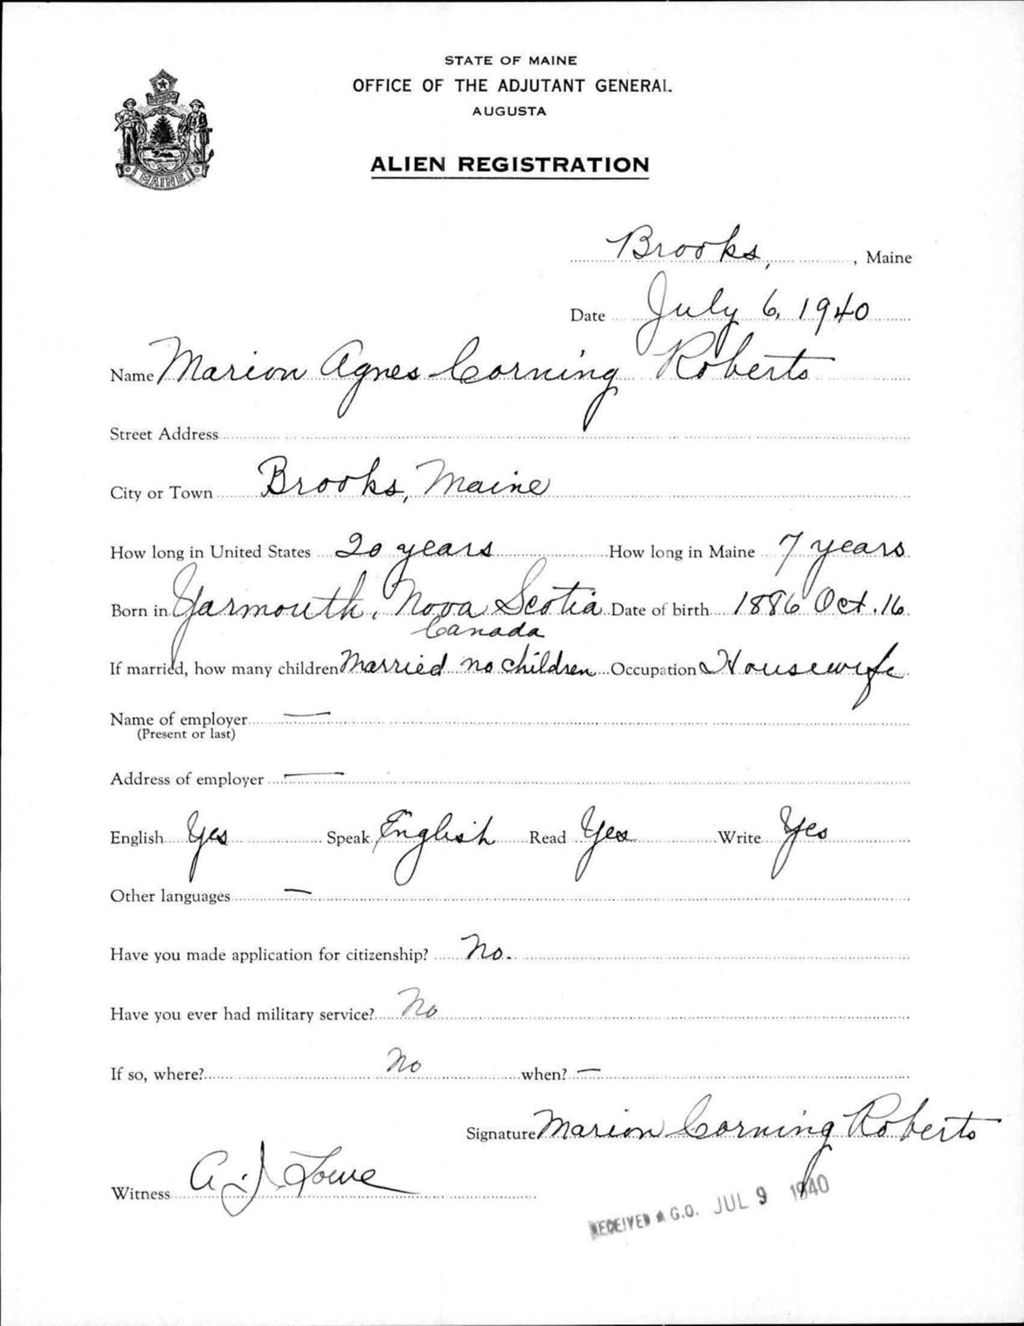 STATE OF MAINE
OFFICE OF THE ADJUTANT GENERAL
AUGUSTA
MAINE
ALIEN REGISTRATION
Brooks, , Maine
Date July 6, 1940
Name Marion Agnes Corning Roberts
Street Address
City or Town Brooks, Maine
How long in United States 20 years How long in Maine 7 years
Born in Yarmouth, Nova Scotia Date of birth 1886 Oct. 16
Canada
If married, how many children Married no children Occupation Housewife
Name of employer —
(Present or last)
Address of employer —
English Yes Speak English Read Yes Write Yes
Other languages —
Have you made application for citizenship? No.
Have you ever had military service? No
If so, where? No when? —
Signature Marion Corning Roberts
Witness A. J. Lowe
RECEIVED A.G.O. JUL 9 1940